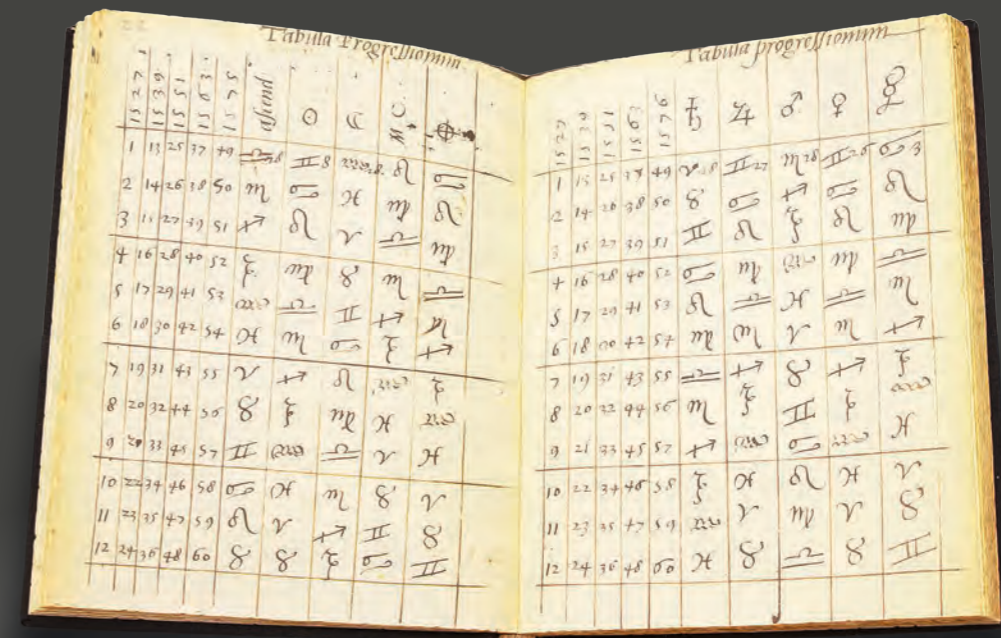 22
Tabula Progressionum
1527 1539 1551 1563 1575 ☉ ☽ M.C. ⊕
1 13 25 37 49 ♎ ♊ 8 ♒ ♌ ♋
2 14 26 38 50 ♏ ♋ ♓ ♍ ♌
3 15 27 39 51 ♐ ♌ ♈ ♎ ♍
4 16 28 40 52 ♑ ♍ ♉ ♏ ♎
5 17 29 41 53 ♒ ♎ ♊ ♐ ♏
6 18 30 42 54 ♓ ♏ ♋ ♑ ♐
7 19 31 43 55 ♈ ♐ ♌ ♒ ♑
8 20 32 44 56 ♉ ♑ ♍ ♓ ♒
9 21 33 45 57 ♊ ♒ ♎ ♈ ♓
10 22 34 46 58 ♋ ♓ ♏ ♉ ♈
11 23 35 47 59 ♌ ♈ ♐ ♊ ♉
12 24 36 48 60 ♉ ♉ ♑ ♋ ♊
Tabula progressionum
1527 1539 1551 1563 1576 ♄ ♃ ♂ ♀ ☿
1 13 25 37 49 ♈ 28 ♊ 27 ♏ 28 ♊ 26 ♋ 3
2 14 26 38 50 ♉ ♋ ♐ ♋ ♌
3 15 27 39 51 ♊ ♌ ♑ ♌ ♍
4 16 28 40 52 ♋ ♍ ♒ ♍ ♎
5 17 29 41 53 ♌ ♎ ♓ ♎ ♏
6 18 30 42 54 ♍ ♏ ♈ ♏ ♐
7 19 31 43 55 ♎ ♐ ♉ ♐ ♑
8 20 32 44 56 ♏ ♑ ♊ ♑ ♒
9 21 33 45 57 ♐ ♒ ♋ ♒ ♓
10 22 34 46 58 ♑ ♓ ♌ ♓ ♈
11 23 35 47 59 ♒ ♈ ♍ ♈ ♉
12 24 36 48 60 ♓ ♉ ♎ ♉ ♊